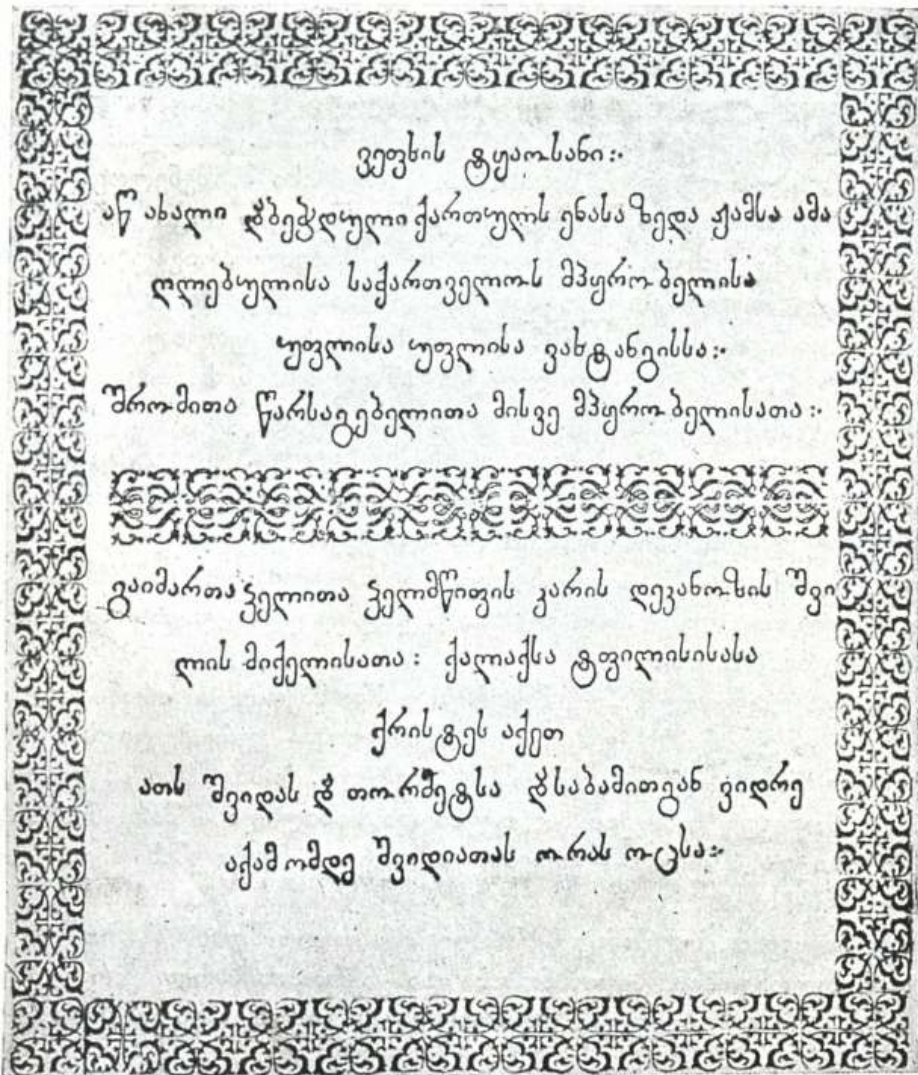 ვეფხის ტყაოსანი:·
აწ ახალი დაბეჭდული ქართულს ენასა ზედა ჟამსა ამა
ღლებულისა საქართველოს მპყრობელისა
უფლისა უფლისა ვახტანგისსა:·
შრომითა წარსაგებელითა მისვე მპყრობელისათა:·
გაიმართა ჴელითა ჴელმწიფის კარის დეკანოზის შვი
ლის მიქელისათა: ქალაქსა ტფილისისასა
ქრისტეს აქეთ
ათს შვიდას და თორმეტსა დასაბამითგან ვიდრე
აქამომდე შვიდიათას ორას ოცსა:·